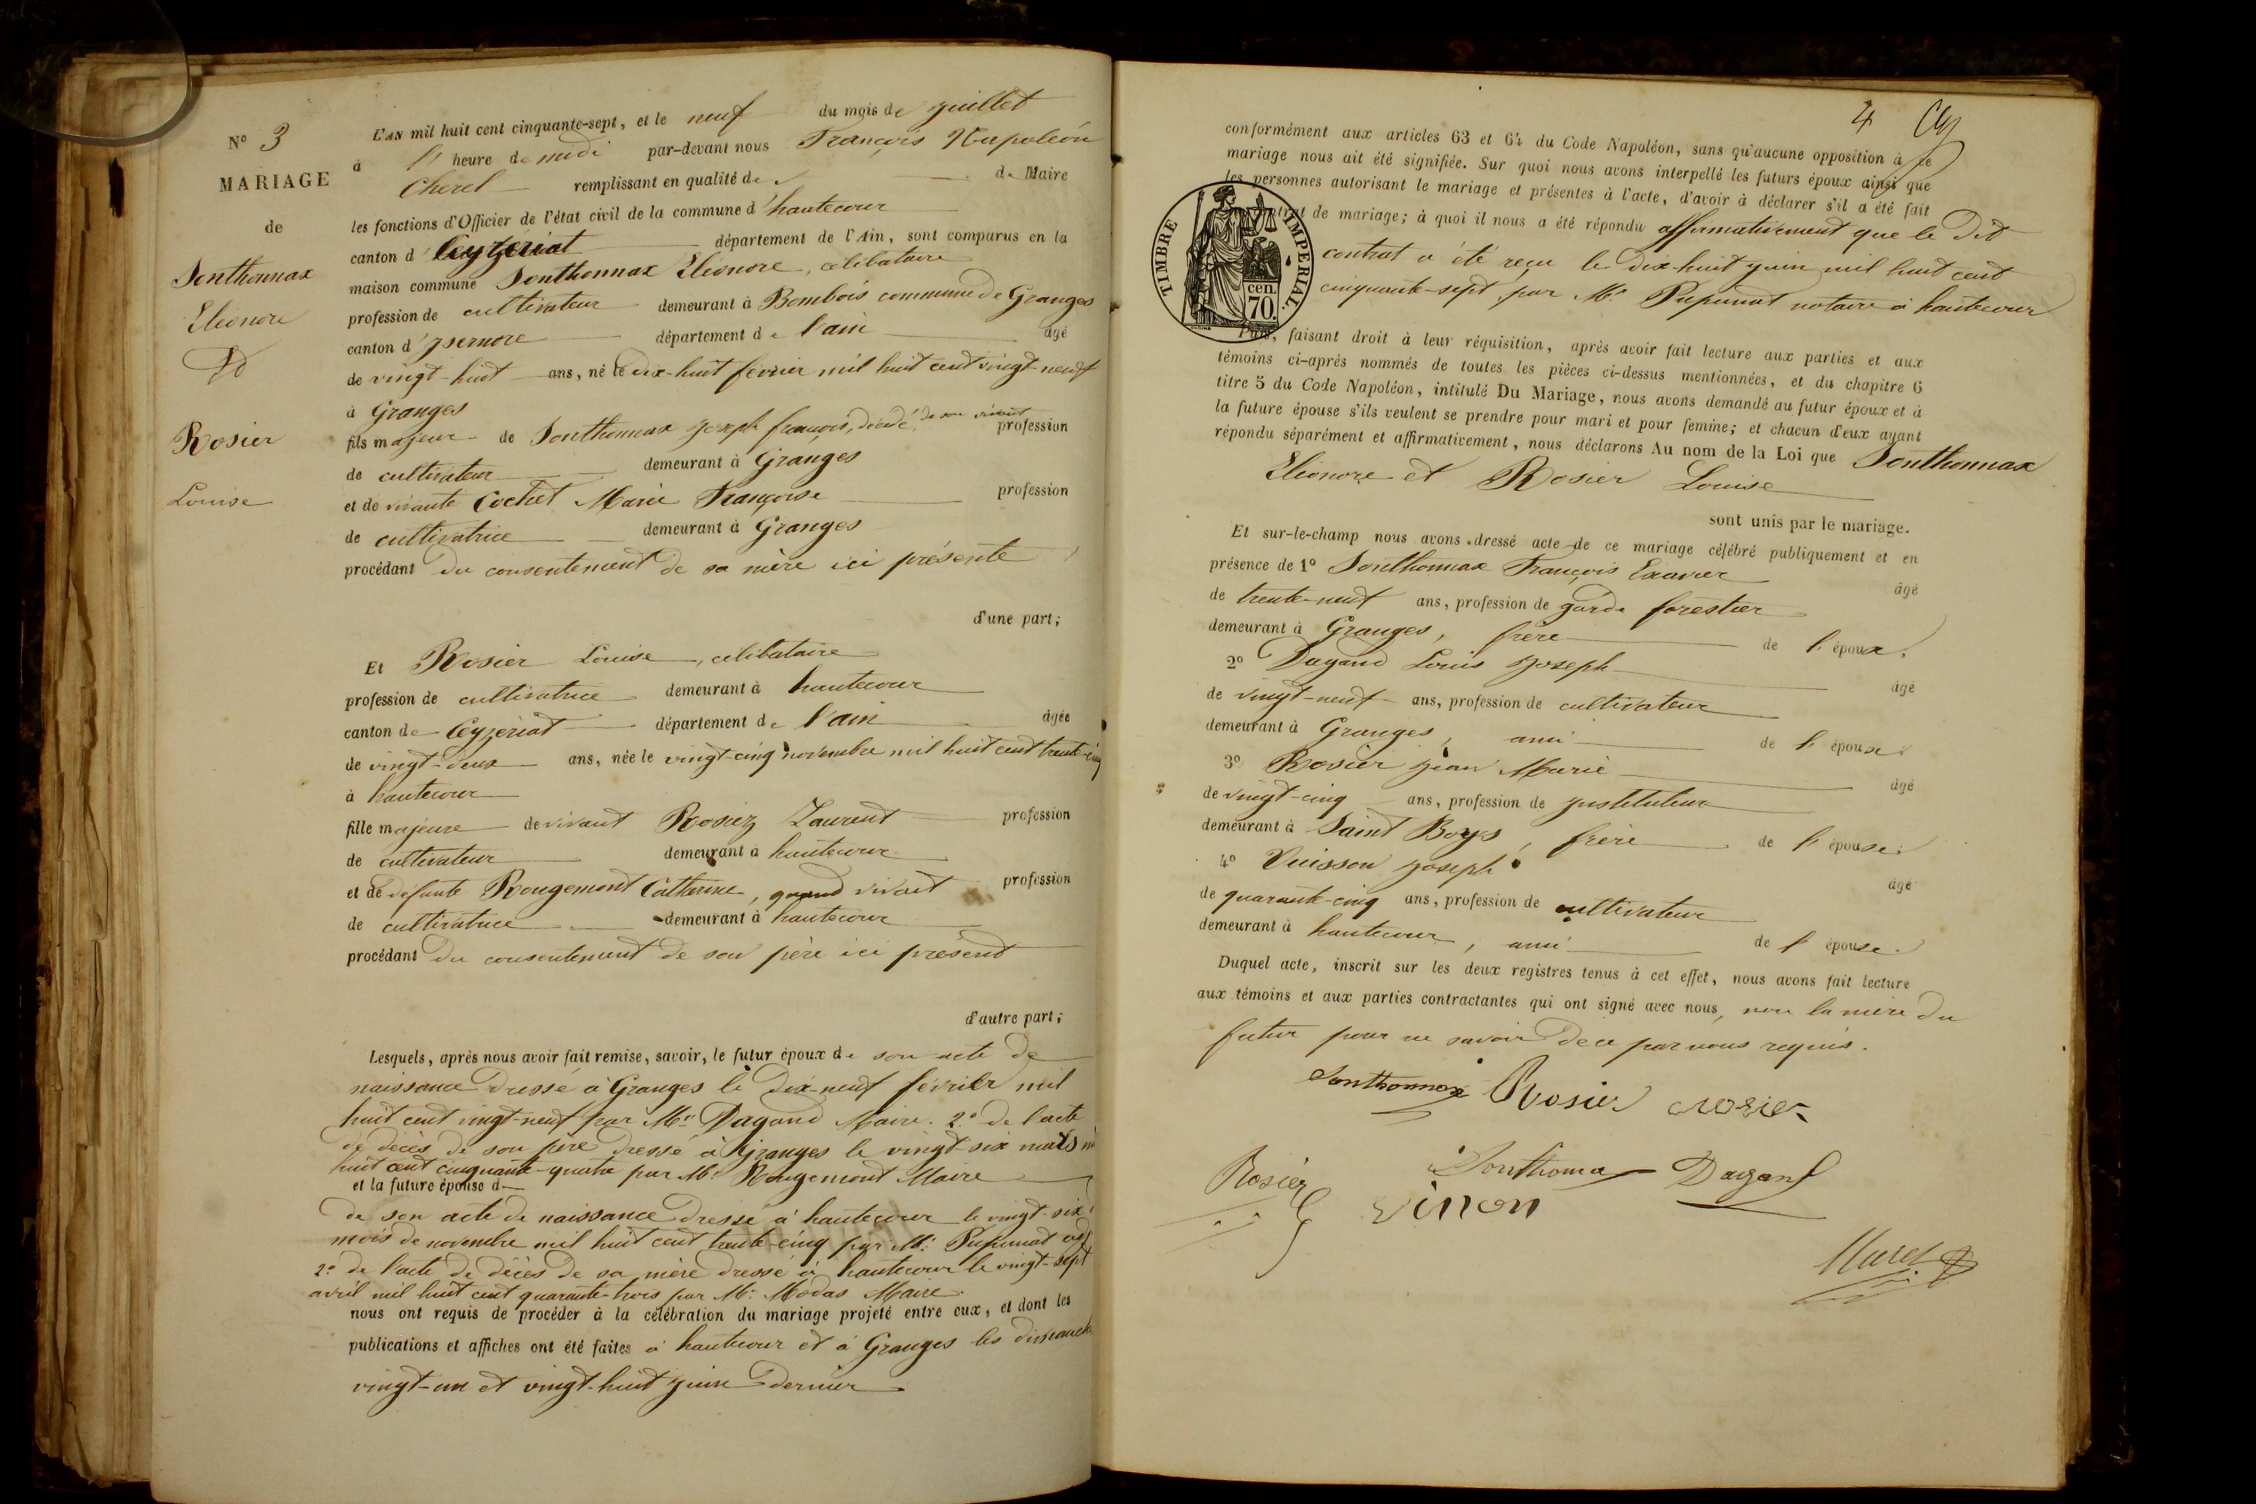 N° 3
MARIAGE
de
Sonthonnax
Eléonore
&
Rosier
Louise
L'AN mil huit cent cinquante-sept, et le neuf du mois de juillet
à l' heure de midi par-devant nous François Napoléon
remplissant en qualité de Maire
les fonctions d'Officier de l'état civil de la commune d'hautecour
canton d Ceyzériat département de l'Ain, sont comparus en la
maison commune Sonthonnax Eléonore, célibataire
profession de cultivateur demeurant à Bombois commune de Granges
canton d'ysernore département de l'ain âgé
de vingt-huit ans, né le dix-huit février mil huit cent vingt-neuf
à Granges
fils majeur de Sonthonnax joseph françois, décédé, de son vivant profession
de cultivateur demeurant à Granges
et de vivante Cochet Marie Françoise profession
de cultivatrice demeurant à Granges
procédant du consentement de sa mère ici présente
d'une part;
Et Rosier Louise, célibataire
profession de cultivatrice demeurant à hautecour
canton de Ceyzériat département de l'ain âgée
de vingt-deux ans, née le vingt-cinq novembre mil huit cent trente-cinq
à hautecour
fille majeure de vivant Rosier Laurent profession
de cultivateur demeurant à hautecour
et de défunte Rougemont Catherine, quand vivait profession
de cultivatrice demeurant à hautecour
procédant du consentement de son père ici présent
d'autre part;
Lesquels, après nous avoir fait remise, savoir, le futur époux de son acte de
naissance dressé à Granges le dix-neuf février mil
huit cent vingt-neuf par Mr Dagand Maire. 2° de l'acte
de décès de son père dressé à Granges le vingt-six mars
huit cent cinquante-quatre par Mr Rougemont Maire
et la future épouse d
de son acte de naissance dressé à hautecour le vingt-six
mois de novembre mil huit cent trente-cinq par Mr. Pupunat
2° de l'acte de décès de sa mère dressé à hautecour le vingt-sept
avril mil huit cent quarante-trois par Mr. Modas Maire
nous ont requis de procéder à la célébration du mariage projeté entre eux, et dont les
publications et affiches ont été faites à hautecour et à Granges les dimanches
vingt-un et vingt-huit juin dernier
4
conformément aux articles 63 et 64 du Code Napoléon, sans qu'aucune opposition à ce
mariage nous ait été signifiée. Sur quoi nous avons interpellé les futurs époux ainsi que
les personnes autorisant le mariage et présentes à l'acte, d'avoir à déclarer s'il a été fait
de mariage; à quoi il nous a été répondu affirmativement que le dit
contrat a été reçu le dix-huit juin mil huit cent
cinquante-sept, par Me Pupunat notaire à hautecour
TIMBRE IMPERIAL.
70 cen.
Puis, faisant droit à leur réquisition, après avoir fait lecture aux parties et aux
témoins ci-après nommés de toutes les pièces ci-dessus mentionnées, et du chapitre 6
titre 5 du Code Napoléon, intitulé Du Mariage, nous avons demandé au futur époux et à
la future épouse s'ils veulent se prendre pour mari et pour femme; et chacun d'eux ayant
répondu séparément et affirmativement, nous déclarons Au nom de la Loi que Sonthonnax
Eléonore et Rosier Louise
sont unis par le mariage.
Et sur-le-champ nous avons dressé acte de ce mariage célébré publiquement et en
présence de 1° Sonthonnax François Exavier âgé
de trente-neuf ans, profession de garde forestier
demeurant à Granges, frère de l'époux,
2° Dagand Louis joseph âgé
de vingt-neuf ans, profession de cultivateur
demeurant à Granges, ami de l'épouse
3° Rosier jean Marie âgé
de vingt-cinq ans, profession de instituteur
demeurant à Saint Boys, frère de l'épouse.
4° joseph âgé
de quarante-cinq ans, profession de cultivateur
demeurant à hautecour, ami de l'épouse.
Duquel acte, inscrit sur les deux registres tenus à cet effet, nous avons fait lecture
aux témoins et aux parties contractantes qui ont signé avec nous, non la mère du
futur pour ne savoir de ce par nous requis.
Sonthonnax Rosier rosier
Rosier Sonthona Dagand